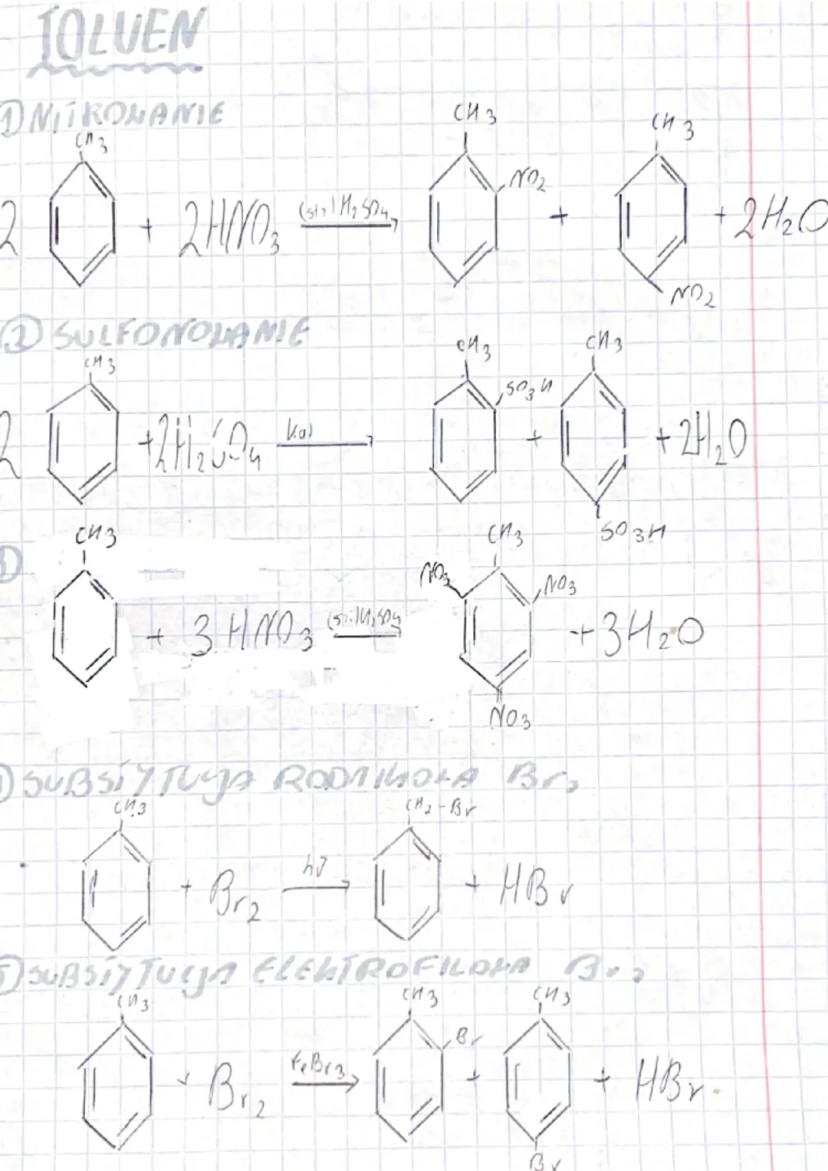 TOLUEN
① NITROWANIE
CH3 CH3 CH3
2 + 2HNO3 (stż) H2SO4 NO2 + + 2H2O
NO2
② SULFONOWANIE
CH3 CH3 CH3
2 + 2H2SO4 SO3H + + 2H2O
SO3H
CH3 CH3
NO3 NO3
+ 3HNO3 + 3H2O
NO3
SUBSTYTUCJA RODNIKOWA Br2
CH3 CH2-Br
+ Br2 hν + HBr
SUBSTYTUCJA ELEKTROFILOWA Br2
CH3 CH3 CH3
+ Br2 FeBr3 Br + + HBr
Br